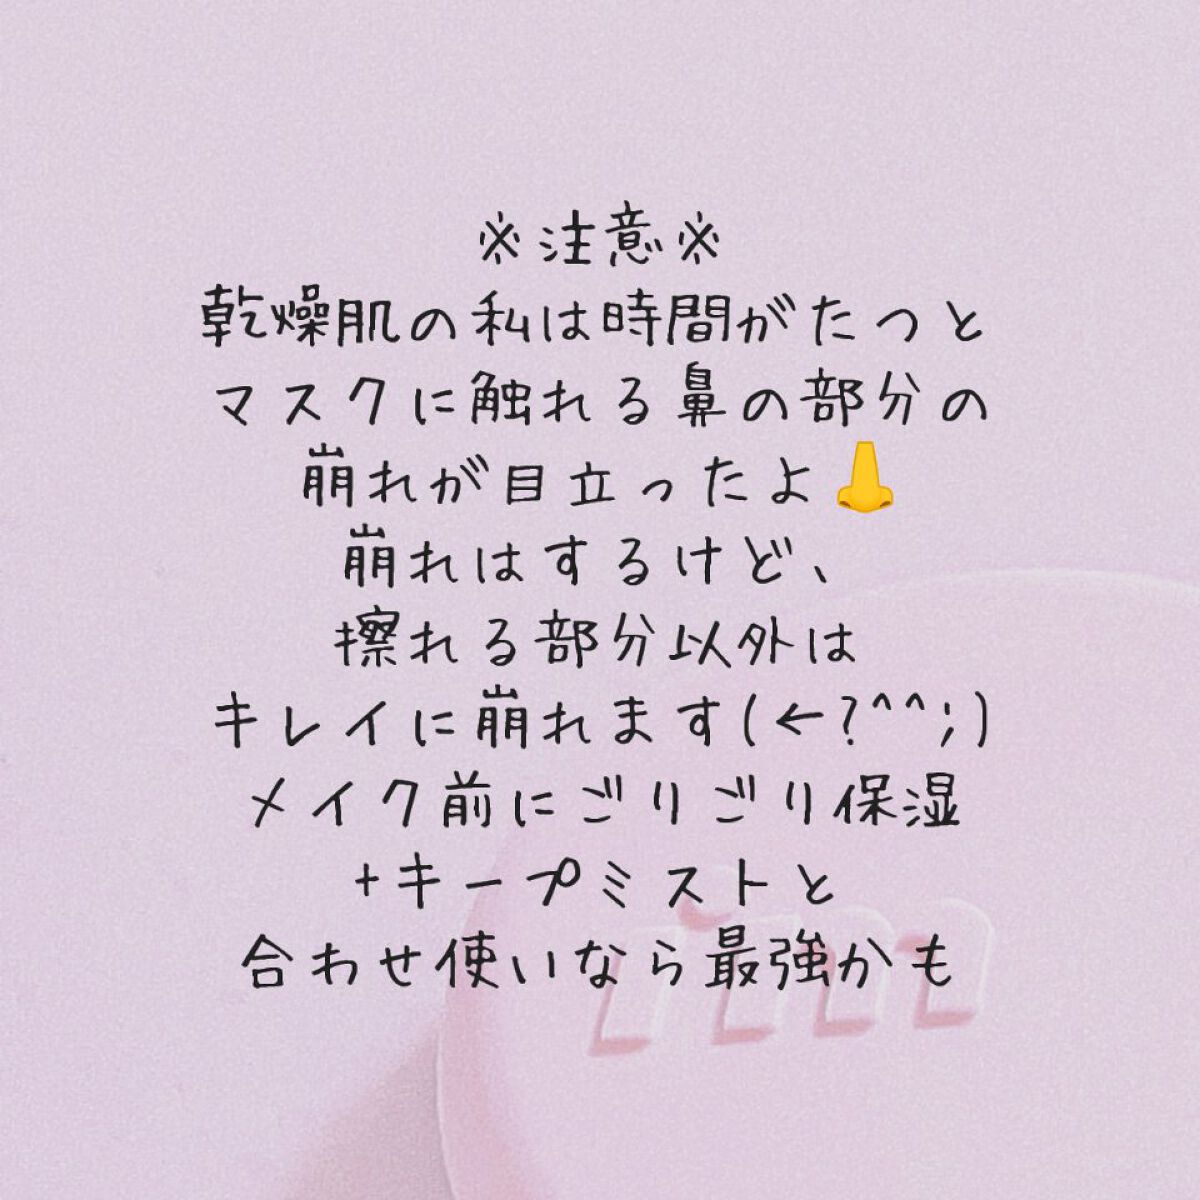 ※注意※
乾燥肌の私は時間がたつと
マスクに触れる鼻の部分の
崩れが目立ったよ👃
崩れはするけど、
擦れる部分以外は
キレイに崩れます(←?^^;)
メイク前にごりごり保湿
+キープミストと
合わせ使いなら最強かも